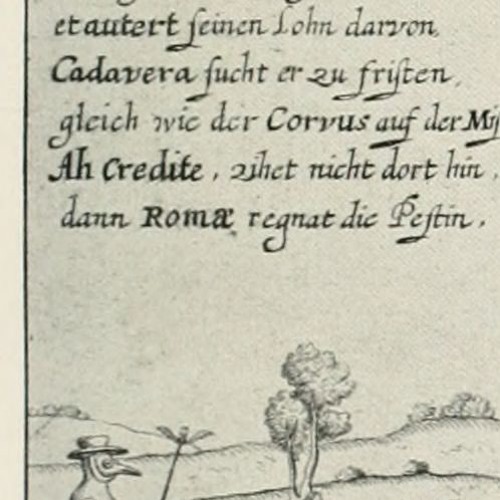 et autert seinen Lohn darvon,
Cadavera sucht er zu fristen,
gleich wie der Corvus auf der Mis
Ah Credite, zihet nicht dort hin,
dann Romæ regnat die Pestin.